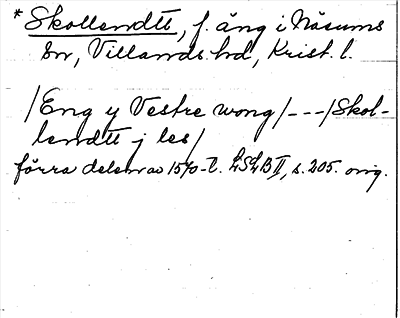 * Skollendtt, f. äng i Näsums
sn, Villands hd, Krist. l.
/Eng y Vestre wong/---/Skol-
lendtt j les/
förra delen av 1570-t. LSLB II, s. 205. orig.